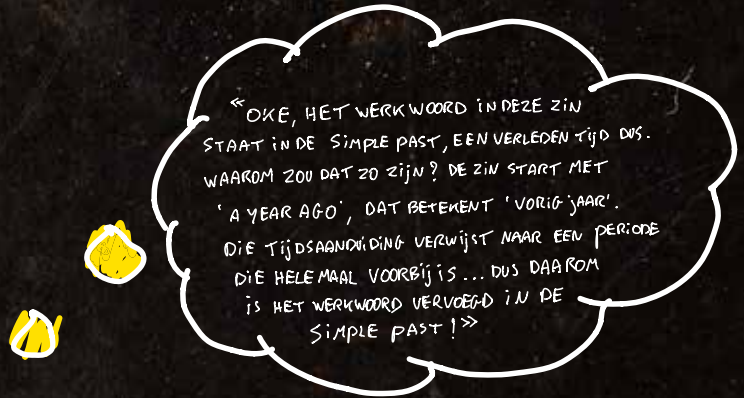 «OKE, HET WERKWOORD IN DEZE ZIN
STAAT IN DE SIMPLE PAST, EEN VERLEDEN TIJD DUS.
WAAROM ZOU DAT ZO ZIJN? DE ZIN START MET
'A YEAR AGO', DAT BETEKENT 'VORIG JAAR'.
DIE TIJDSAANDUIDING VERWIJST NAAR EEN PERIODE
DIE HELEMAAL VOORBIJ IS... DUS DAAROM
IS HET WERKWOORD VERVOEGD IN DE
SIMPLE PAST!»